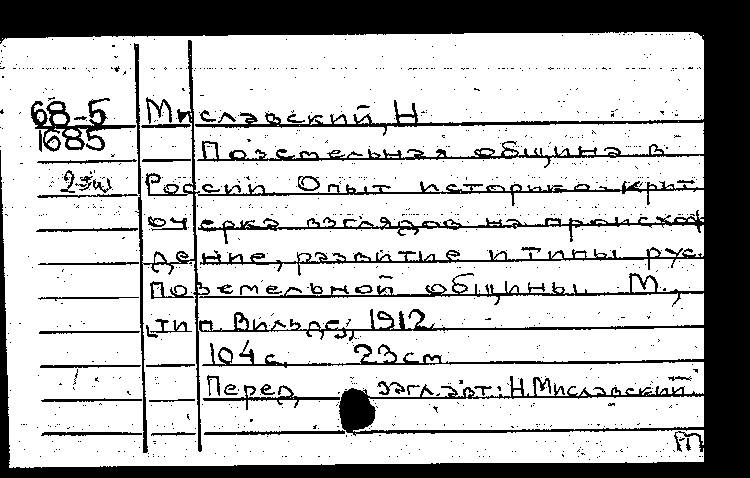 68-5 Миславский, Н
1685 Поземельная община в
2 экз России. Опыт историко-крит.
очерка взглядов на происхож
дение, развитие и типы рус.
поземельной общины. М.,
тип. Вильде, 1912.
104 с. 23 см
Перед загл. авт.: Н. Миславский.
РП